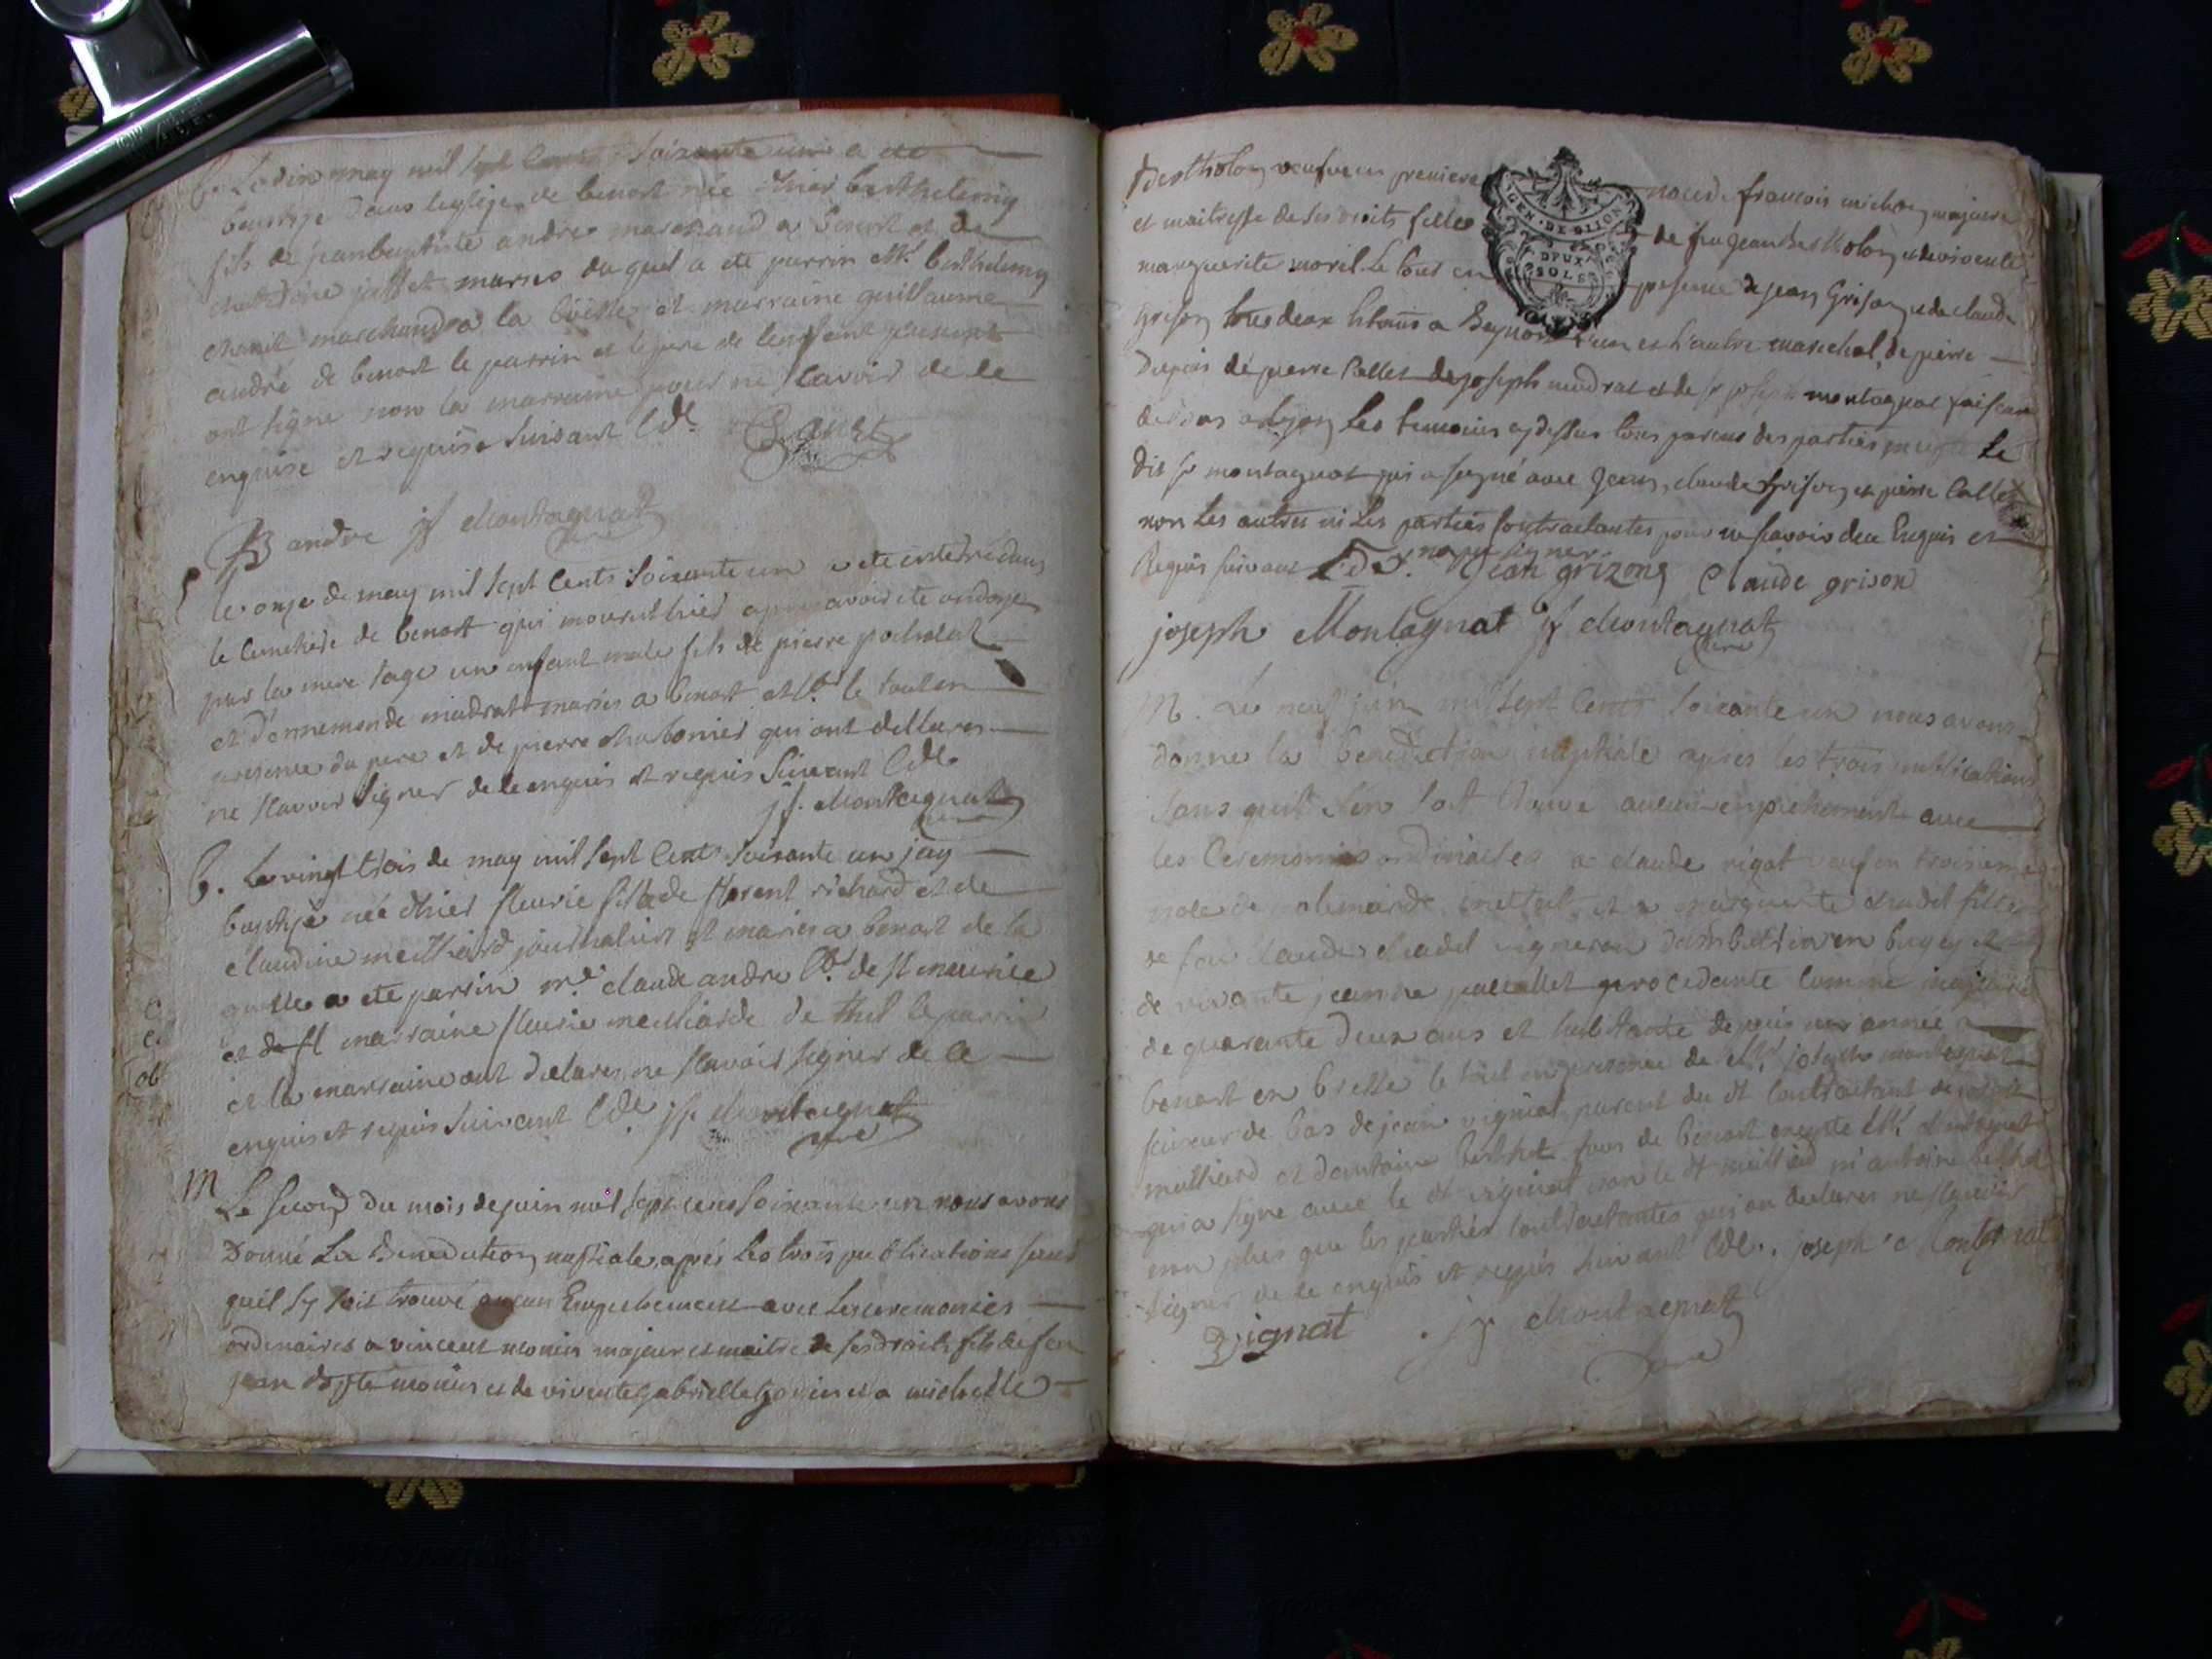 b. Le dix may mil sept Cents Soixante un a ete
baptisé dans leglise de benost née hier barthelemy
fils de jean baptiste andre marchand a benost et de
mariés du quel a ete parrin Mr. barthelemy
marchand a la et marraine guillaume
andre de benost le parrin et le pere de lenfent present
ont signe non la marraine pour ne scavoir de ce
enquise et requise Suivant l'Ode.
B andre jf Montagnat
le onze de may mil sept Cents Soixante un a ete enterré dans
le Cimetiere de benost qui mourut hier apres avoir ete ondoye
par la mere sage un enfant male fils de pierre pocholat
et d'ennemonde mudrat mariés a benost le tout en
presence du pere et de pierre charbonier qui ont dellares
ne scavoir signer de ce enquis et requis Suivant l'Ode
jf. Montagnat
curé
b. Le vingt trois de may mil sept Cents Soixante un jay
baptisé née hier fleurie fille de florent richard et de
claudine meilliard journaliers et mariés a benost de la
quelle a ete parrin mre claude andre de st meurice
et marraine fleurie meilliarde de thil le parrin
et la marraine ont declares ne scavoir signer de ce
enquis et requis Suivant l'Ode jf. Montagnat
curé
M
Le second du mois de juin mil sept cens soixante un nous avons
Donné La Benediction nuptiale apres les trois publications sans
quil sy soit trouvé aucun Empechement avec les ceremonies
ordinaires a vincent monin majeur et maitre de ses droits fils de feu
jean bapte monin et de vivente gabrielle et a michelle
Bertholon veufve en premiere noces de francois michon majeure
et maitresse de ses droits fille de feu jean Bertholon et de vivente
GEN. DE DIJON
DEUX
SOLS
marguerite morel. Le tout en presence de jean Grison et de claude
Grison tous deux a Beynost l'un et l'autre marechal, de pierre
Dupuis de pierre Collet de joseph mudrat et de sr joseph montagnat faiseur
de bas a Lyon Les temoins cy dessus tous parens des parties excepté Le
dit sr montagnat qui a signé avec Jean, claude Grison et pierre Collet
non Les autres ni Les parties Contractantes pour ne scavoir de ce Enquis et
Requis suivant L'Ode. Jean grizong Claude grison
joseph Montagnat jf Montagnat
curé
M. Le neuf juin mil sept Cents Soixante un nous avons
donné la benediction nuptiale apres les trois publications
sans quil s'en soit trouve aucun enpechement avec
les Ceremonies ordinaires a claude rigot veuf en troisieme
noce de et a marguerite chadel fille
de feu claude chadel vigneron dambutrix en bugey et
de vivante jeanne pacallet procedante Comme majeure
de quarante deux ans et habitante depuis une année a
benost en bresse le tout en presence de Mr. joseph montagnat
faiseur de bas de jean vignat parent du dt Contractant de joseph
meilliard et dantoine berthet tous de benost excepte Mr. Montagnat
qui a signe avec le dt vignat non le dt meilliard ni antoine berthet
non plus que les parties Contractantes qui on declares ne scavoir
signer de ce enquis et requis suivant l'Ode. joseph Montagnat
Vignat . jf Montagnat
curé